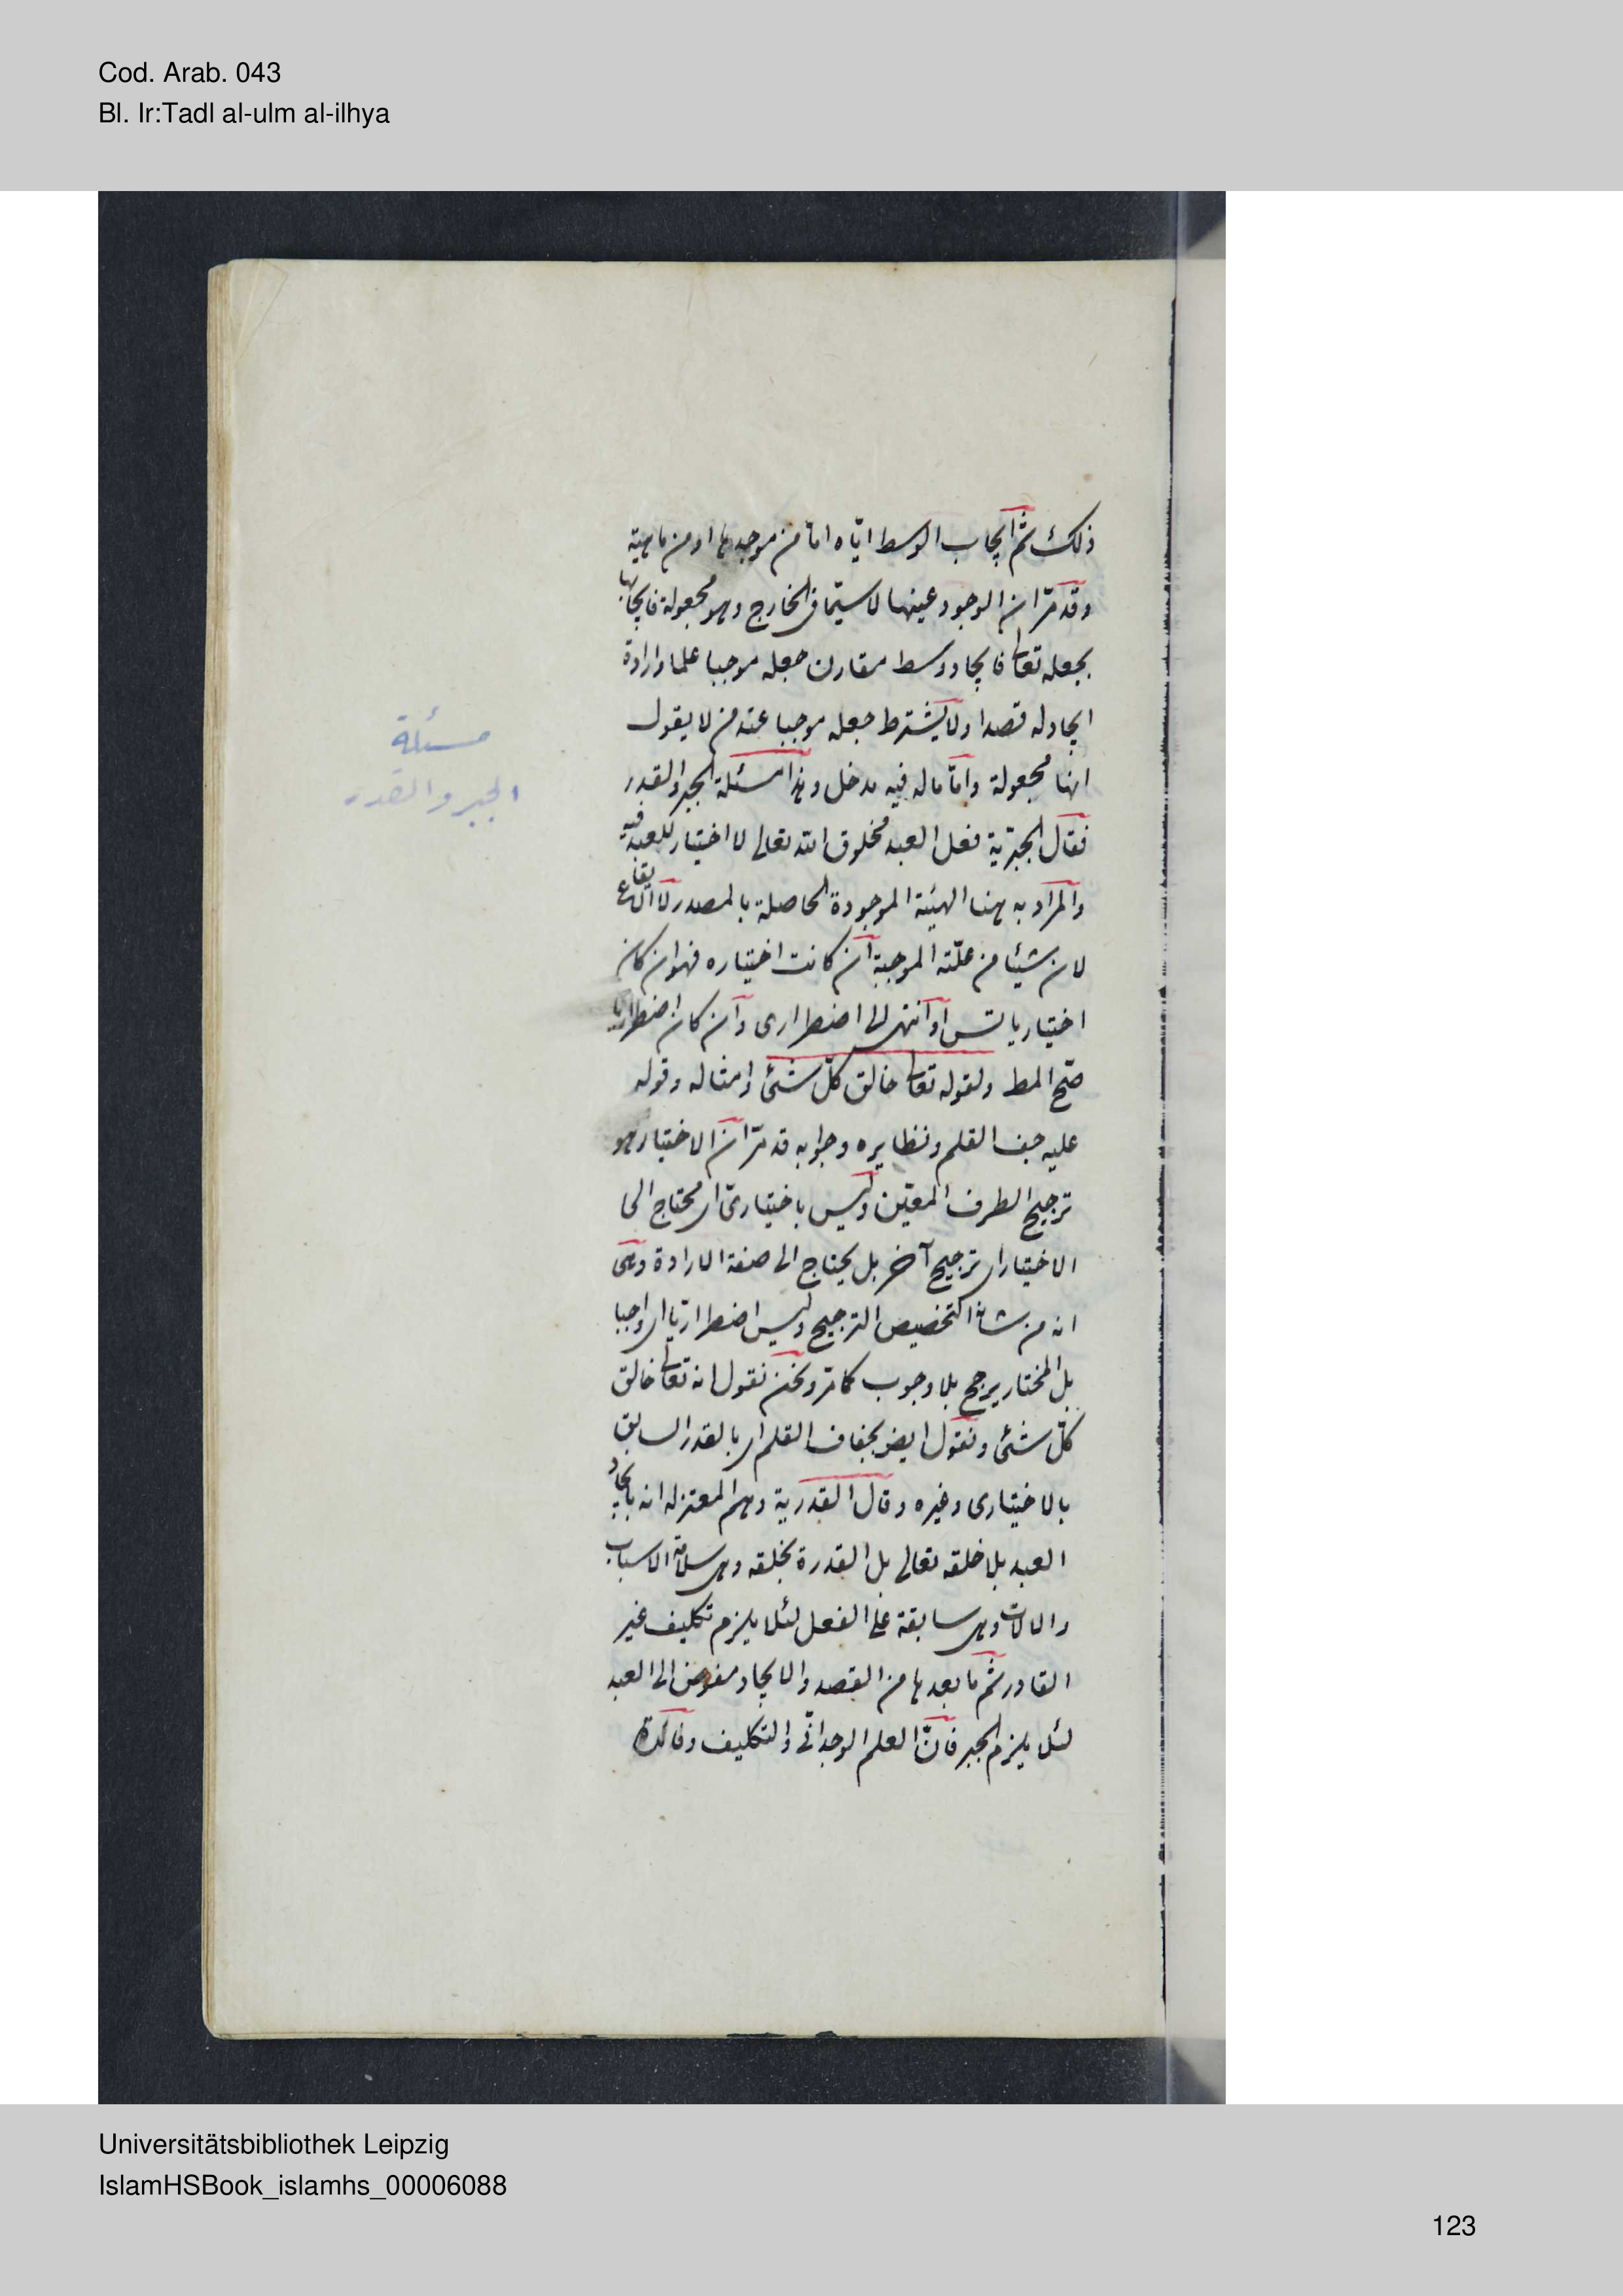 Cod. Arab. 043
Bl. Ir:Tadl al-ulm al-ilhya
ذلك ثم ايجاب الوسط اياه اما من موجدها او من ماهية
وقد مرّ ان الوجود عينها لا سيّما فى الخارج وهو مجعولة فايجابها
بجعله تعالى فايجاد وسط مقارن جعله موجبا علما وارادة
ايجاد له قصدا ولا يشترط جعله موجبا عند من لا يقول
انها مجعولة وامّا ما له فيه مدخل وهذا مسئلة الجبر والقدر
مسئلة
الجبر والقدر
فقال الجبرّية فعل العبد مخلوق الله تعالى لا اختيار للعبد فيه
والمراد به هنا الهيئة الموجودة الحاصلة بالمصدر لا الايقاع
لان شيئا من علّته الموجبة ان كانت اختياره فهو ان كان
اختياريا تس او انتهى الى اضطرارى وان كان اضطراريا
صحّ المط ولقوله تعالى خالق كلّ شئ وامثاله وقوله
عليه جف القلم ونظايره وجوابه قد مرّ ان الاختيار هو
ترجيح الطرف المعيّن وليس باختيارىّ اى محتاج الى
الاختيار اى ترجيح آخر بل يحتاج الى صفة الارادة وهى
انه من شانه التخصيص الترجيح وليس اضطراريّا اى واجبا
بل المختار يرجح بلا وجوب كما مرّ ونحن نقول انه تعالى خالق
كلّ شئ ونقول ايض بجفاف القلم اى بالقدر السابق
بالاختيارى وغيره وقال القدرية وهم المعتزله انه بايجاد
العبد بلا خلقه تعالى بل القدرة بخلقه وهى سلامة الاسباب
والالات وهى سابقة على الفعل لئلا يلزم تكليف غير
القادر ثم ما بعدها من القصد والايجاد مفوض الى العبد
لئلا يلزم الجبر فانّ العلم الوجدانّى والتكليف وفائدة
Universitätsbibliothek Leipzig
IslamHSBook_islamhs_00006088
123